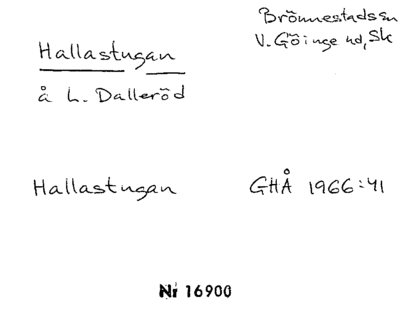 Hallastugan
å L. Dalleröd
Brönnestads sn
V. Göinge hd, Sk
Hallastugan
GHÅ 1966:41
Nr 16900